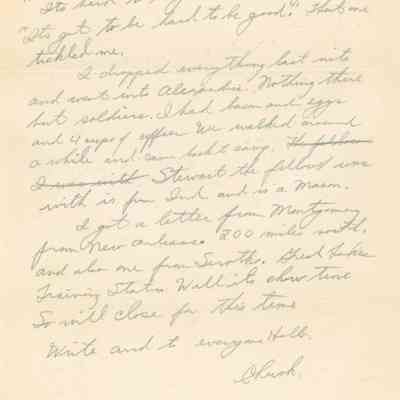 "Its got to be hard to be good." That one
tickled me.
I dropped everything last nite
and went into Alexandria. Nothing there
but soldiers. I had bacon and eggs
and 4 cups of coffee. We walked around
a while and came back to camp. The fellow
I was with Stewart the fellow I was
with is from Ind and is a Mason.
I got a letter from Montgomery
from New Orleans. 200 miles south.
and also one from Great Lakes
Training Station. Well its chow time
So will close for this time
Write and to everyone Hello.